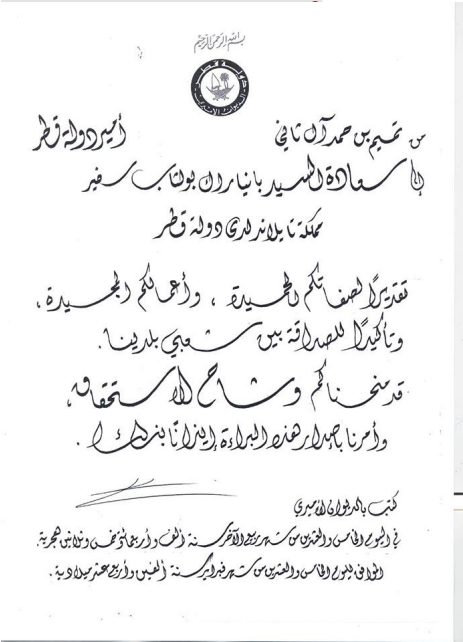 بسم الله الرحمن الرحيم
دولة قطر
الديوان الأميري
من تميم بن حمد آل ثاني أمير دولة قطر
إلى سعادة السيد بانياراك بولثاب سفير
مملكة تايلاند لدى دولة قطر
تقديرًا لصفاتكم الحميدة ، وأعمالكم المجيدة ،
وتأكيدًا للصداقة بين شعبي بلدينا .
قد منحناكم وشاح الاستحقاق ،
وأمرنا بإصدار هذه البراءة إيذانًا بذلك .
كتب بالديوان الأميري
في اليوم الخامس والعشرين من شهر ربيع الآخر سنة ألف وأربعمائة وخمس وثلاثين هجرية .
الموافق لليوم الخامس والعشرين من شهر فبراير سنة ألفين وأربع عشر ميلادية .